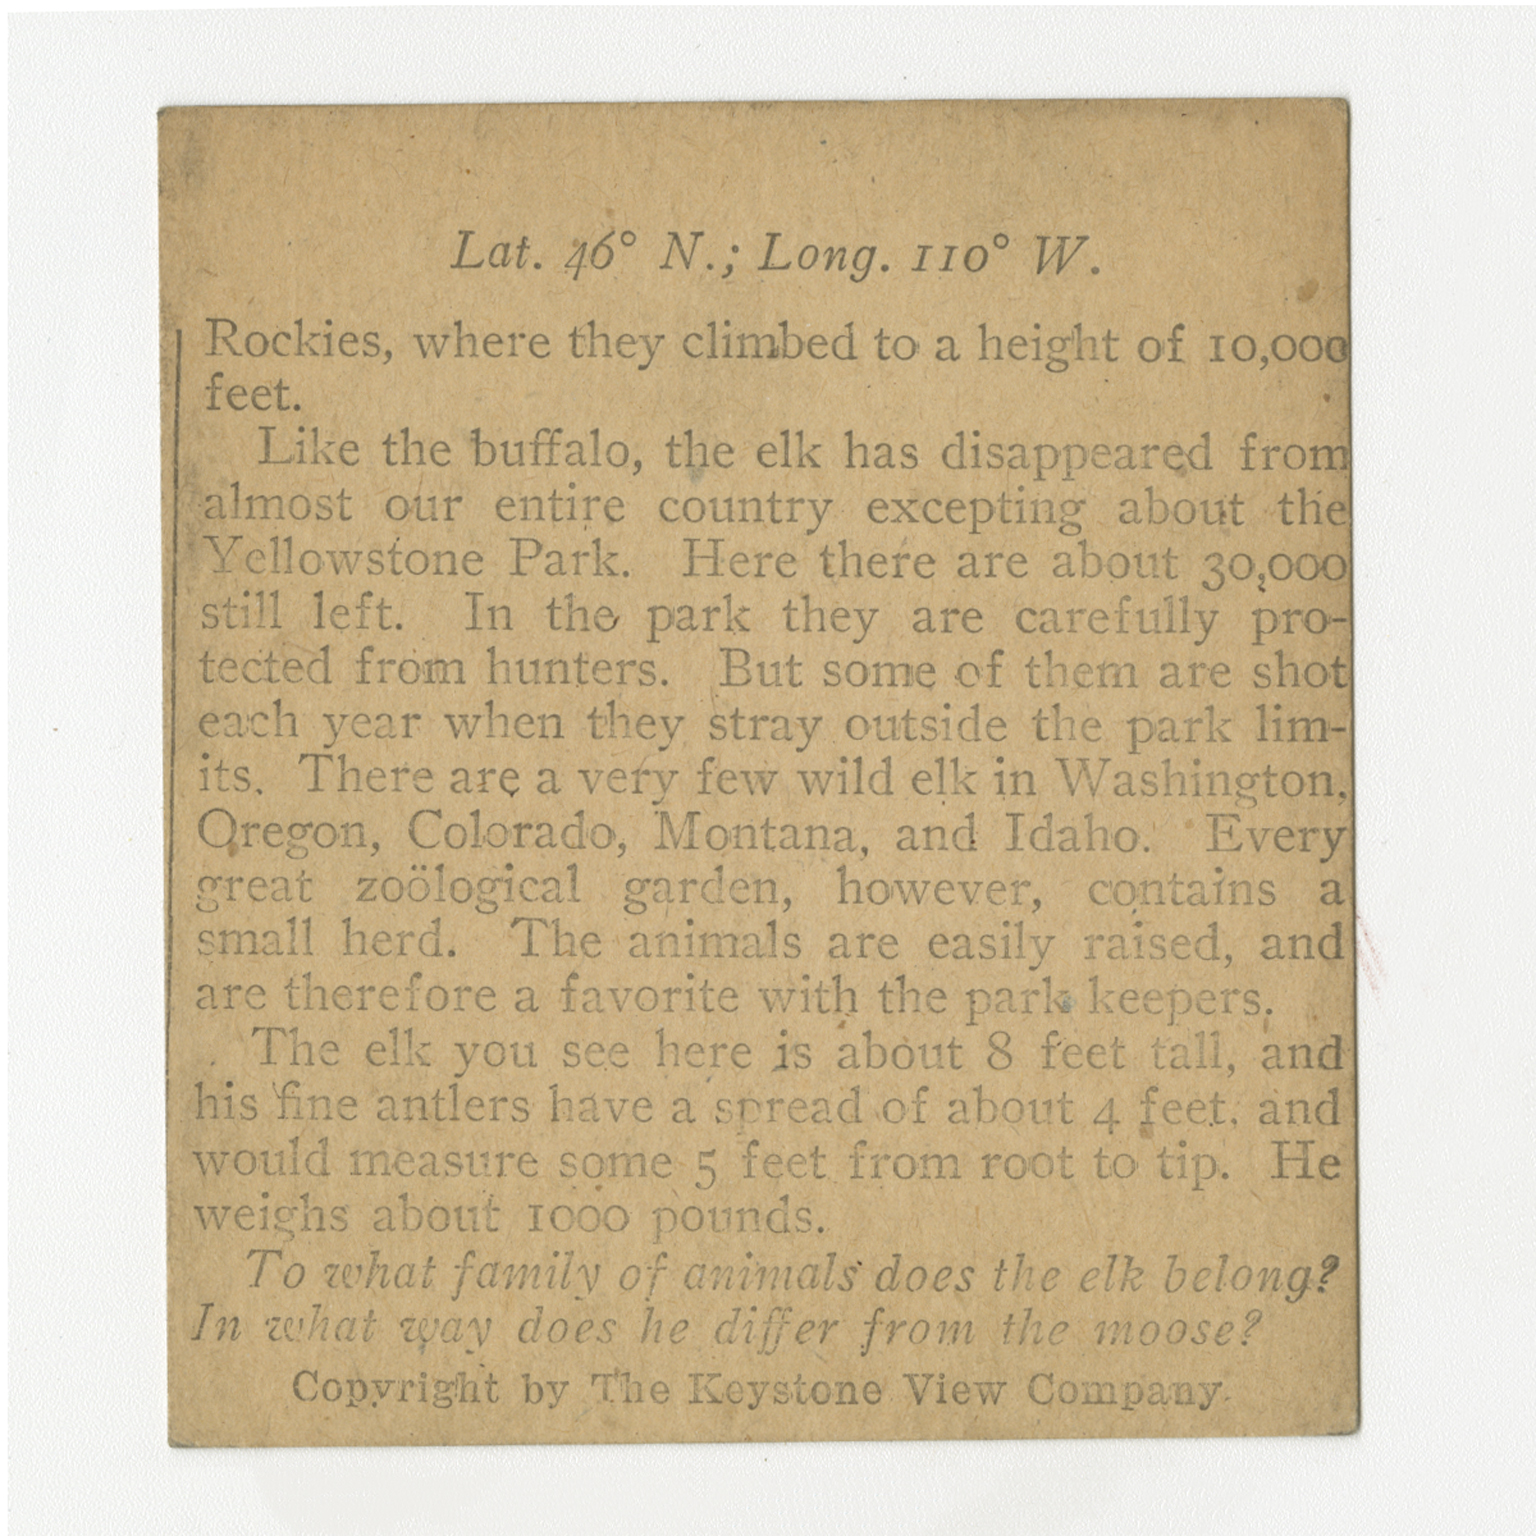 Lat. 46° N.; Long. 110° W.
Rockies, where they climbed to a height of 10,000
feet.
Like the buffalo, the elk has disappeared from
almost our entire country excepting about the
Yellowstone Park. Here there are about 30,000
still left. In the park they are carefully pro-
tected from hunters. But some of them are shot
each year when they stray outside the park lim-
its. There are a very few wild elk in Washington,
Oregon, Colorado, Montana, and Idaho. Every
great zoölogical garden, however, contains a
small herd. The animals are easily raised, and
are therefore a favorite with the park keepers.
The elk you see here is about 8 feet tall, and
his fine antlers have a spread of about 4 feet, and
would measure some 5 feet from root to tip. He
weighs about 1000 pounds.
To what family of animals does the elk belong?
In what way does he differ from the moose?
Copyright by The Keystone View Company.